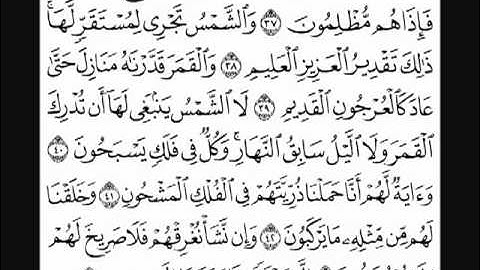 فَإِذَا هُم مُّظْلِمُونَ ۝٣٧ وَالشَّمْسُ تَجْرِى لِمُسْتَقَرٍّ لَّهَا ۚ
ذَٰلِكَ تَقْدِيرُ الْعَزِيزِ الْعَلِيمِ ۝٣٨ وَالْقَمَرَ قَدَّرْنَٰهُ مَنَازِلَ حَتَّىٰ
عَادَ كَالْعُرْجُونِ الْقَدِيمِ ۝٣٩ لَا الشَّمْسُ يَنۢبَغِى لَهَآ أَن تُدْرِكَ
الْقَمَرَ وَلَا الَّيْلُ سَابِقُ النَّهَارِ ۚ وَكُلٌّ فِى فَلَكٍ يَسْبَحُونَ ۝٤٠
وَءَايَةٌ لَّهُمْ أَنَّا حَمَلْنَا ذُرِّيَّتَهُمْ فِى الْفُلْكِ الْمَشْحُونِ ۝٤١ وَخَلَقْنَا
لَهُم مِّن مِّثْلِهِۦ مَا يَرْكَبُونَ ۝٤٢ وَإِن نَّشَأْ نُغْرِقْهُمْ فَلَا صَرِيخَ لَهُمْ